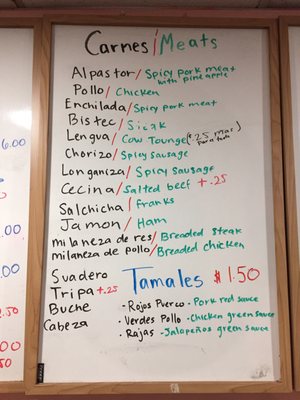 Carnes/Meats
Alpastor/Spicy pork meat
with pineapple
Pollo/Chicken
Enchilada/Spicy pork meat
Bistec/Steak
Lengua/Cow Tounge (.25 mas
para todo
Chorizo/Spicy Sausage
Longaniza/Spicy Sausage
Cecina/Salted beef +.25
Salchicha/franks
Jamon/Ham
milaneza de res/Breaded Steak
milaneza de pollo/Breaded chicken
Suadero
Tripa +.25
Buche
Cabeza
Tamales $1.50
• Rojos Puerco • Pork red sauce
• Verdes Pollo • Chicken green sauce
• Rajas • Jalapeños green sauce